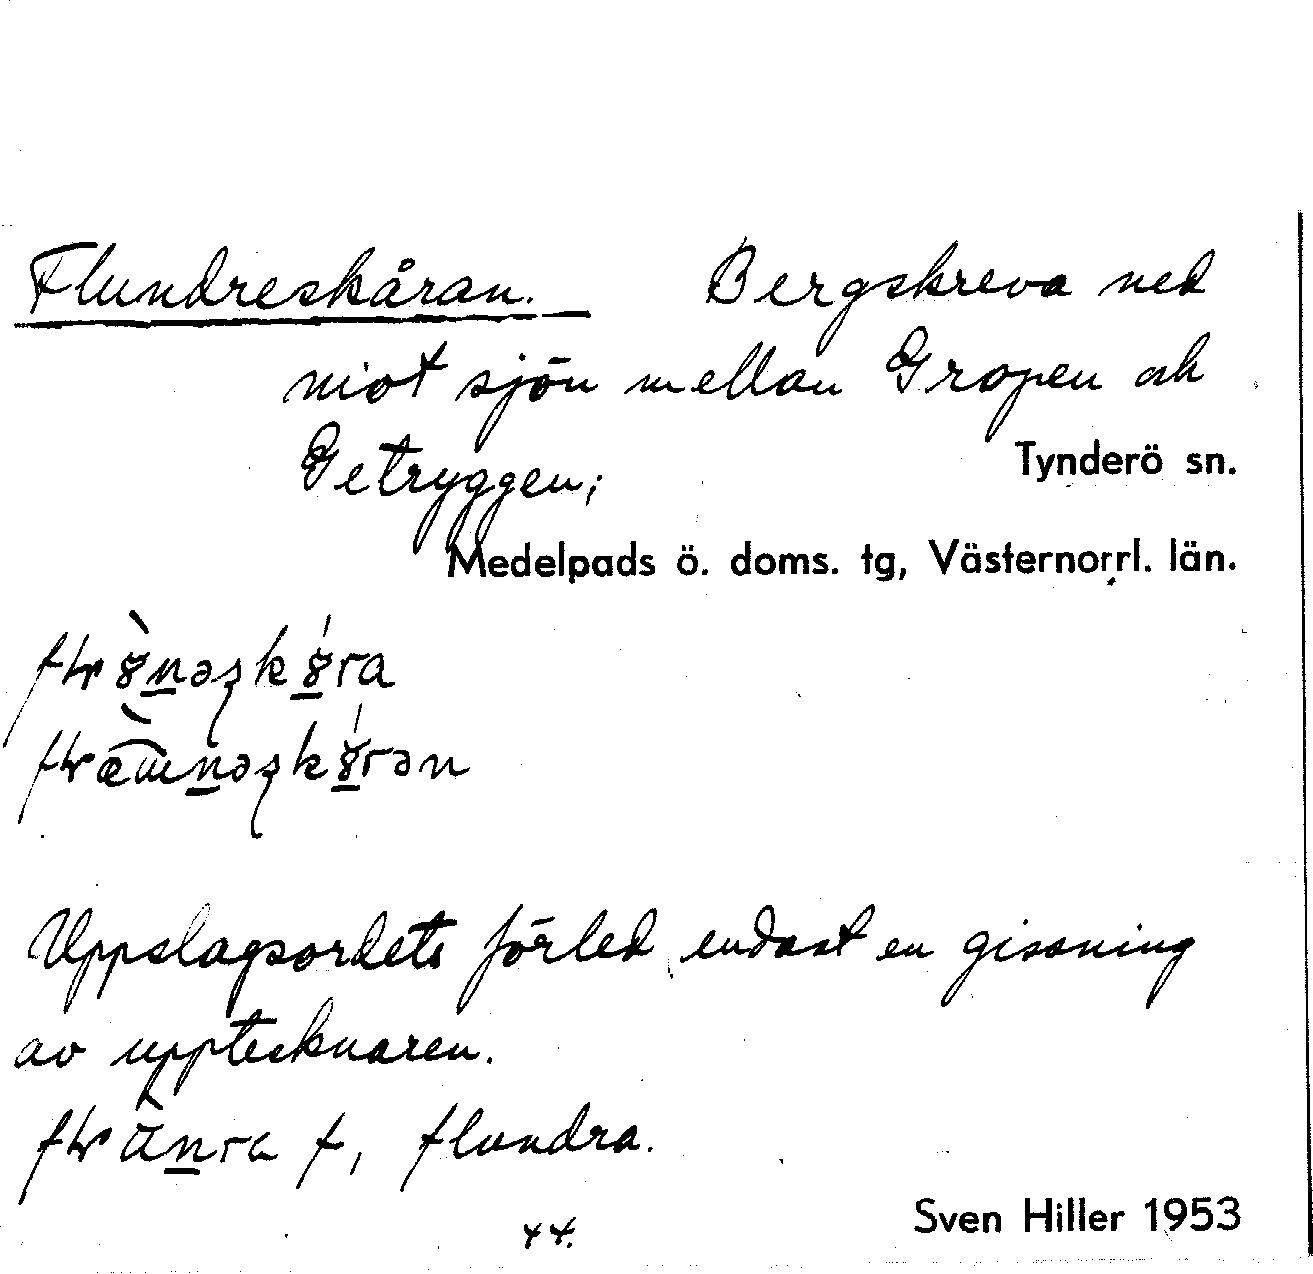 Flundreskåran. Bergskreva ned
mot sjön mellan Gropen och
Getryggen;
Tynderö sn.
Medelpads ö. doms. tg, Västernorrl. län.
Uppslagsordets förled endast en gissning
av upptecknaren.
f, flundra.
44.
Sven Hiller 1953